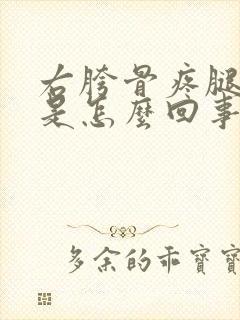 右胯骨疼腿
是怎麼回事
多余的乖寶寶